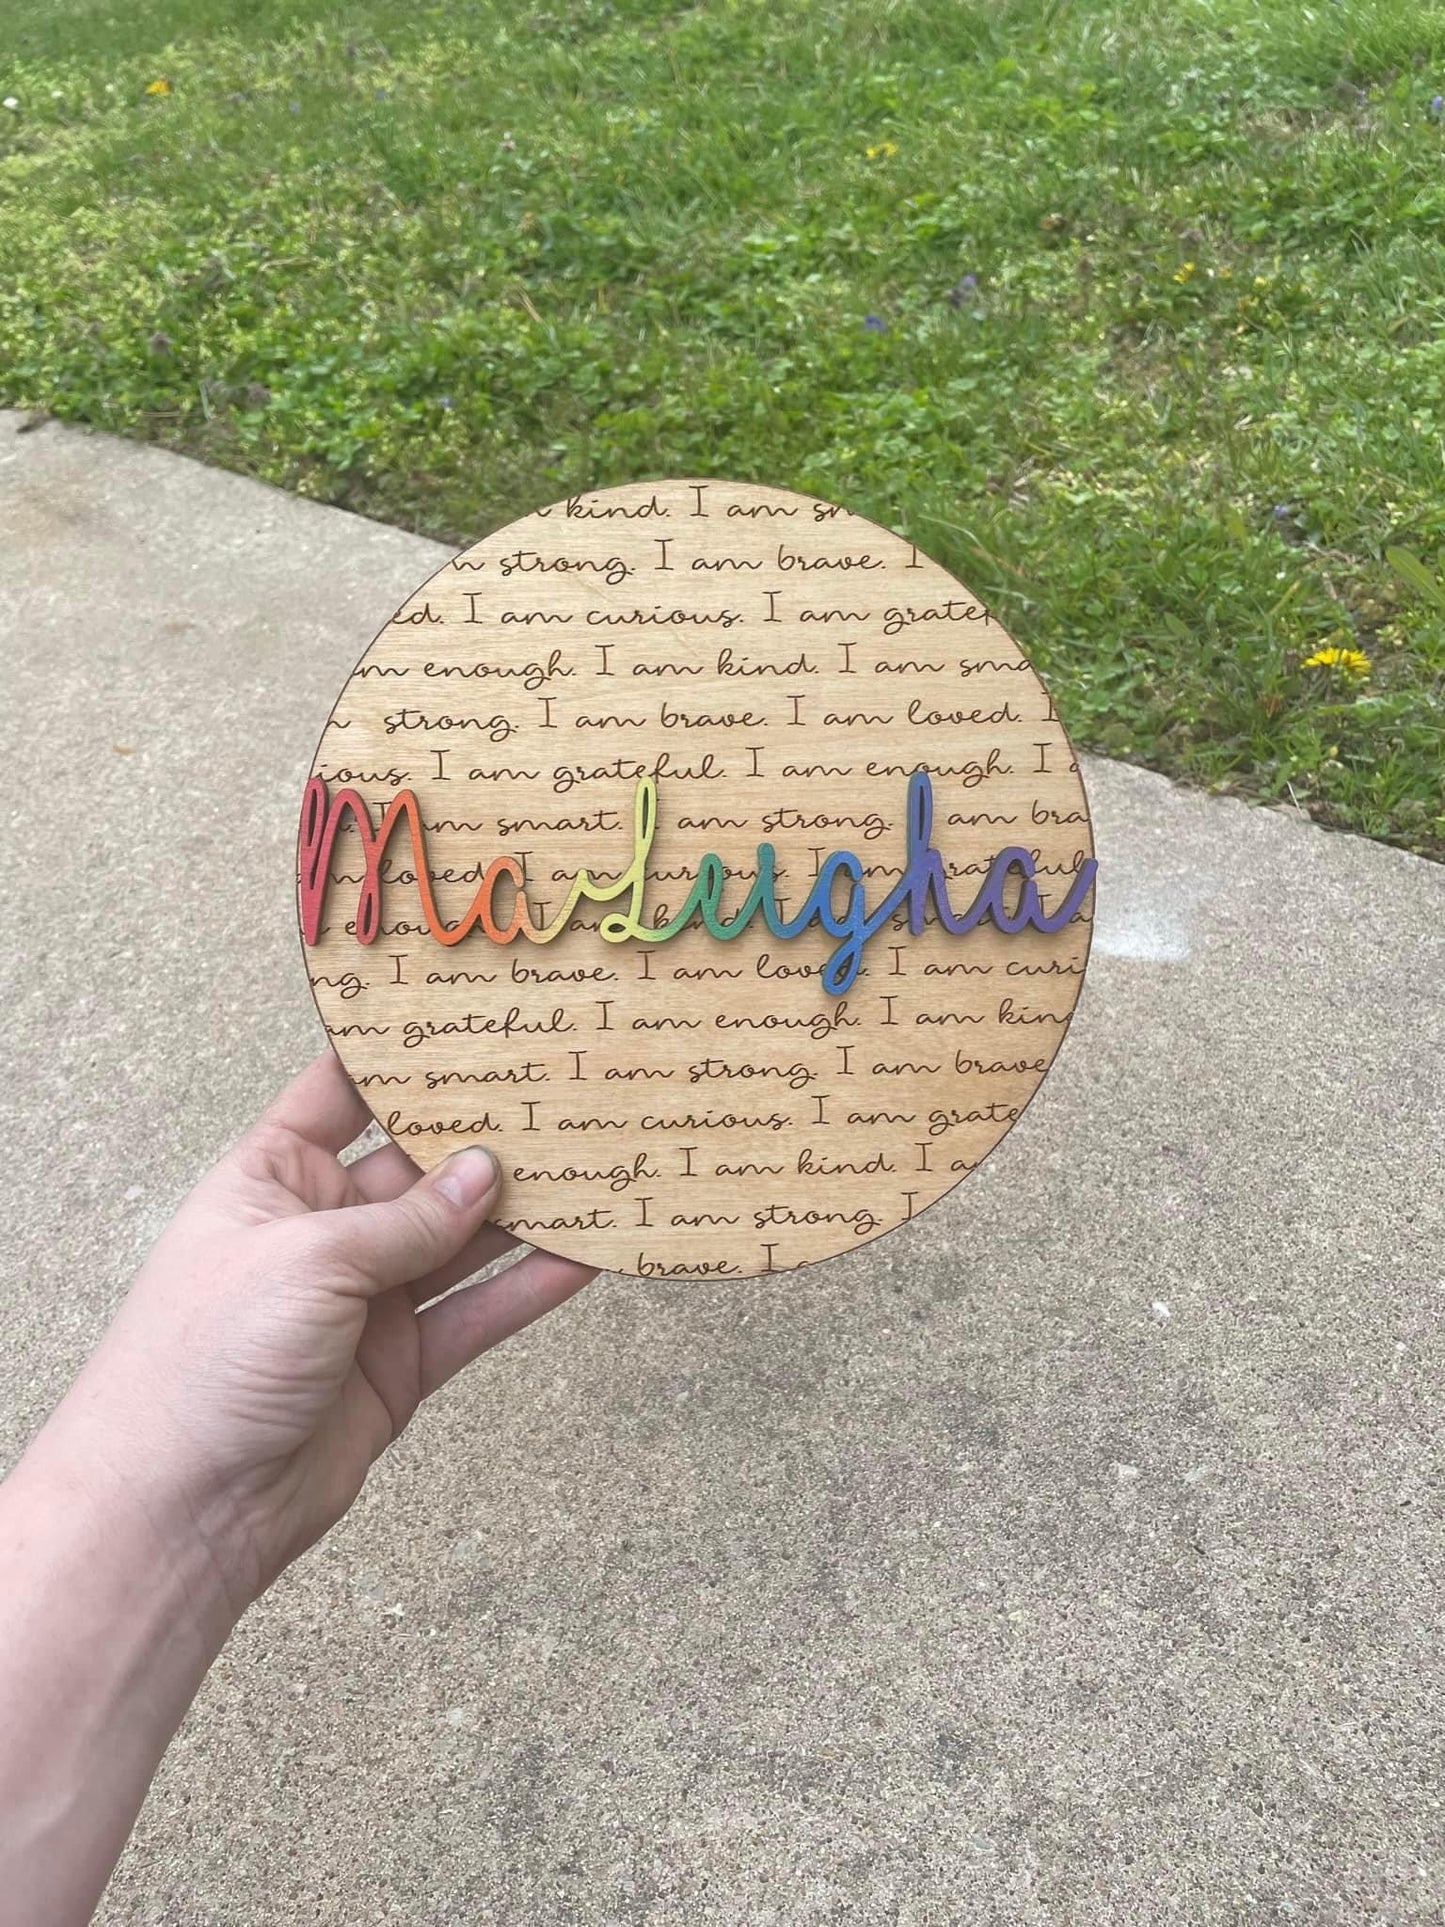 kind. I am sm
strong. I am brave. I
ed. I am curious. I am gratef
am enough. I am kind. I am sma
strong. I am brave. I am loved. I
ious. I am grateful. I am enough. I a
I am smart. I am strong. I am bra
MaLeigha
loved. I am curious. I am grateful
enough. I am kind. I am smart. I a
ng. I am brave. I am loved. I am curi
am grateful. I am enough. I am kind
am smart. I am strong. I am brave
loved. I am curious. I am grate
enough. I am kind. I a
smart. I am strong. I
brave. I a